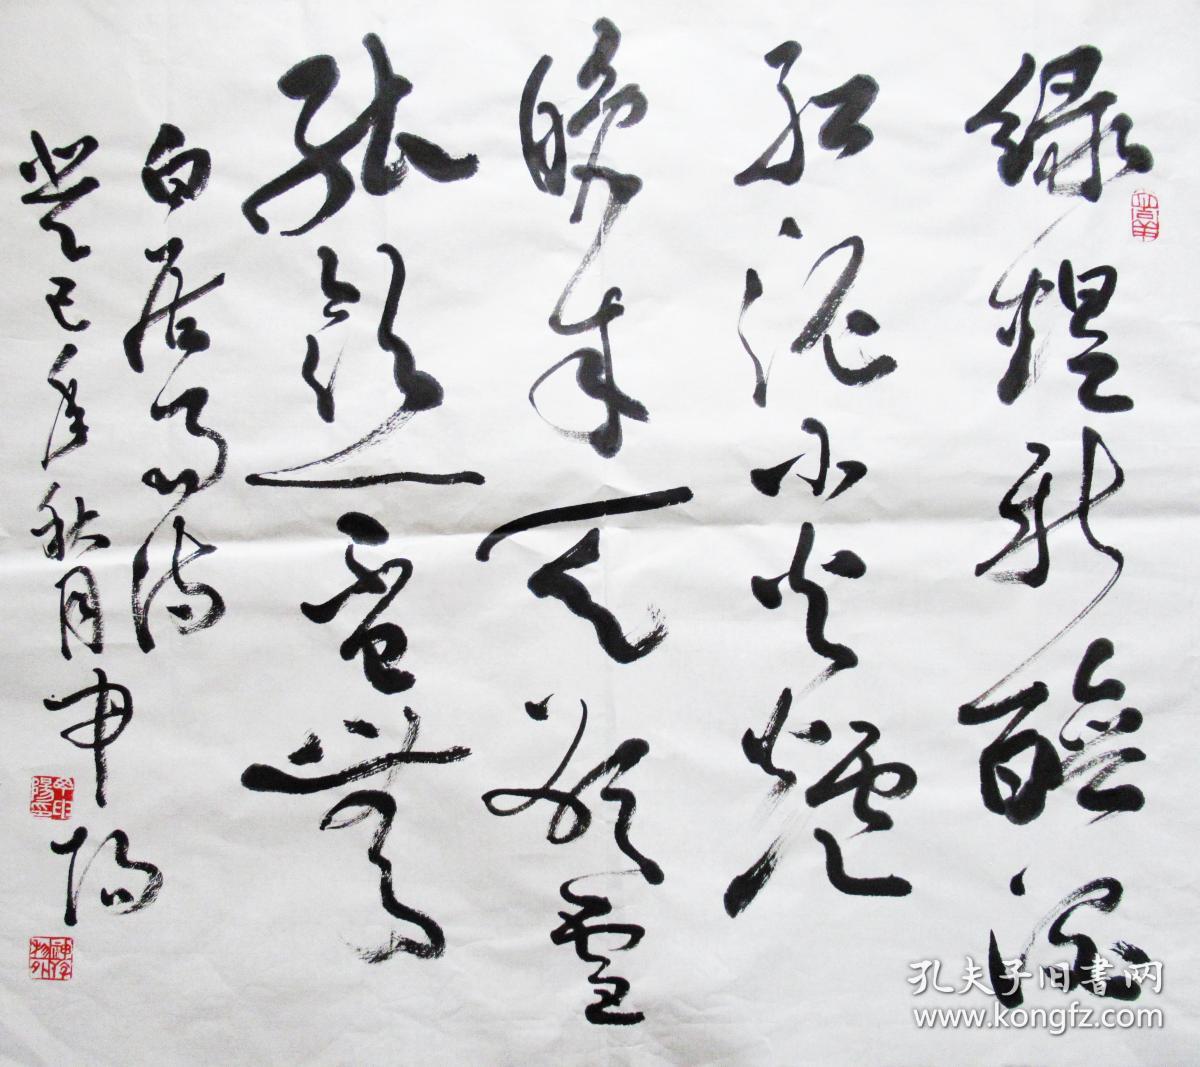 绿螘新醅酒
红泥小火爐
晚来天欲雪
能饮一盃無
白居易诗
癸巳年秋月申阳
孔夫子旧书网
www.kongfz.com